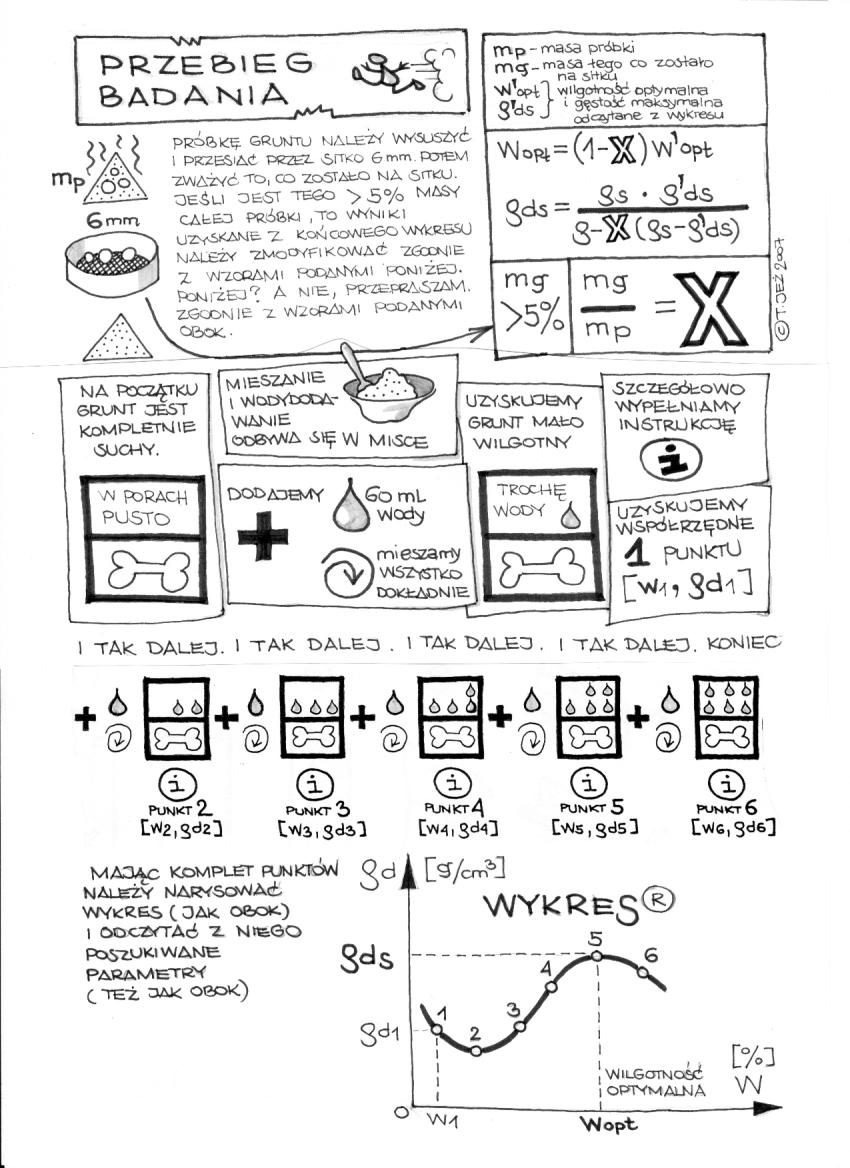 PRZEBIEG
BADANIA
mp
6mm
PRÓBKĘ GRUNTU NALEŻY WYSUSZYĆ
I PRZESIAĆ PRZEZ SITKO 6mm. POTEM
ZWAŻYĆ TO, CO ZOSTAŁO NA SITKU.
JEŚLI JEST TEGO >5% MASY
CAŁEJ PRÓBKI, TO WYNIKI
UZYSKANE Z KOŃCOWEGO WYKRESU
NALEŻY ZMODYFIKOWAĆ ZGODNIE
Z WZORAMI PODANYMI PONIŻEJ.
PONIŻEJ? A NIE, PRZEPRASZAM.
ZGODNIE Z WZORAMI PODANYMI
OBOK.
mp - masa próbki
mg - masa tego co zostało
na sitku
W'opt } wilgotność optymalna
ρ'ds } i gęstość maksymalna
odczytane z wykresu
Wopt = (1-X) W'opt
ρds = ρs · ρ'ds
ρ-X(ρs-ρ'ds)
mg
>5%
mg
mp
= X
© T. JEŻ 2007
NA POCZĄTKU
GRUNT JEST
KOMPLETNIE
SUCHY.
W PORACH
PUSTO
MIESZANIE
I WODYDODA-
WANIE
ODBYWA SIĘ W MISCE
DODAJEMY
+
60 mL
wody
mieszamy
WSZYSTKO
DOKŁADNIE
UZYSKUJEMY
GRUNT MAŁO
WILGOTNY
TROCHĘ
WODY
SZCZEGÓŁOWO
WYPEŁNIAMY
INSTRUKCJĘ
i
UZYSKUJEMY
WSPÓŁRZĘDNE
1 PUNKTU
[W1, ρd1]
I TAK DALEJ. I TAK DALEJ. I TAK DALEJ. I TAK DALEJ. KONIEC
+ + + + +
i i i i i
PUNKT 2 PUNKT 3 PUNKT 4 PUNKT 5 PUNKT 6
[W2, ρd2] [W3, ρd3] [W4, ρd4] [W5, ρd5] [W6, ρd6]
MAJĄC KOMPLET PUNKTÓW
NALEŻY NARYSOWAĆ
WYKRES (JAK OBOK)
I ODCZYTAĆ Z NIEGO
POSZUKIWANE
PARAMETRY
(TEŻ JAK OBOK)
ρd [g/cm³]
WYKRES ®
ρds
ρd1
1
2
3
4
5
6
WILGOTNOŚĆ
OPTYMALNA
[%]
W
0
W1
Wopt